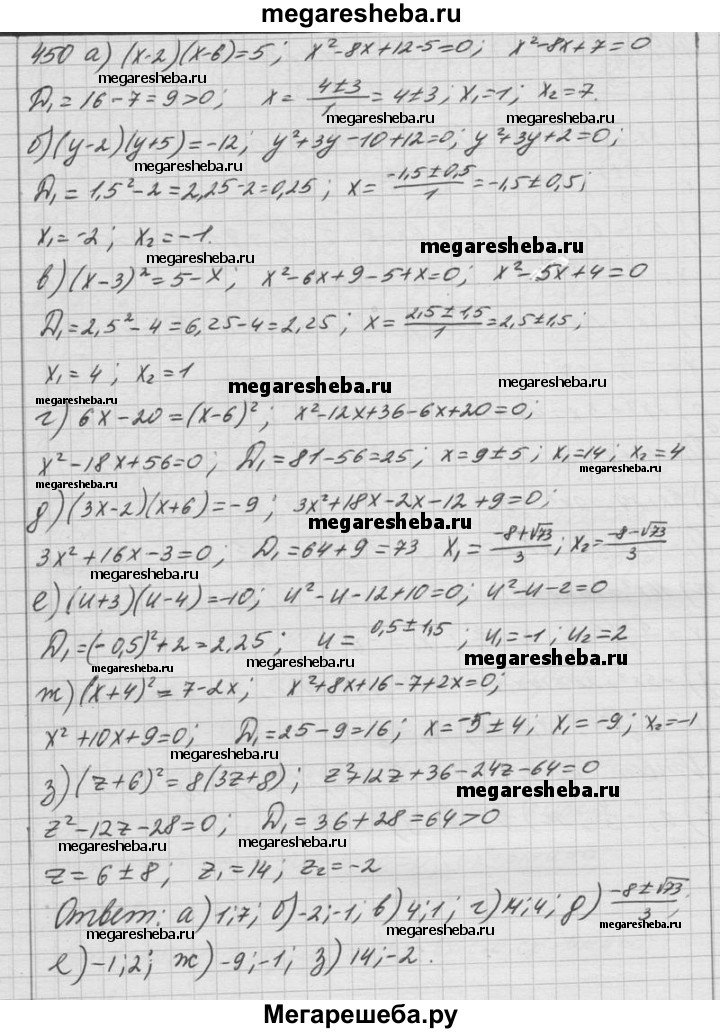 megaresheba.ru
450 а) (x-2)(x-6)=5; x²-8x+12-5=0; x²-8x+7=0
megaresheba.ru megaresheba.ru
D₁=16-7=9>0; x= (4±3)/1 =4±3; x₁=1; x₂=7.
megaresheba.ru
б) (y-2)(y+5)=-12; y²+3y-10+12=0; y²+3y+2=0;
megaresheba.ru megaresheba.ru
D₁=1,5²-2=2,25-2=0,25; x= (-1,5±0,5)/1 =-1,5±0,5;
x₁=-2; x₂=-1.
megaresheba.ru
в) (x-3)²=5-x; x²-6x+9-5+x=0; x²-5x+4=0
megaresheba.ru
D₁=2,5²-4=6,25-4=2,25; x= (2,5±1,5)/1 =2,5±1,5;
x₁=4; x₂=1
megaresheba.ru megaresheba.ru
г) 6x-20=(x-6)²; x²-12x+36-6x+20=0;
megaresheba.ru
x²-18x+56=0; D₁=81-56=25; x=9±5; x₁=14; x₂=4
megaresheba.ru
д) (3x-2)(x+6)=-9; 3x²+18x-2x-12+9=0;
megaresheba.ru
3x²+16x-3=0; D₁=64+9=73 x₁= (-8+√73)/3; x₂= (-8-√73)/3
megaresheba.ru
е) (u+3)(u-4)=-10; u²-u-12+10=0; u²-u-2=0
D₁=(-0,5)²+2=2,25; u= 0,5±1,5; u₁=-1; u₂=2
megaresheba.ru megaresheba.ru
ж) (x+4)²=7-2x; x²+8x+16-7+2x=0;
x²+10x+9=0; D₁=25-9=16; x=-5±4; x₁=-9; x₂=-1
megaresheba.ru
з) (z+6)²=8(3z+8); z²+12z+36-24z-64=0
megaresheba.ru
z²-12z-28=0; D₁=36+28=64>0
megaresheba.ru megaresheba.ru
z=6±8; z₁=14; z₂=-2
Ответ: а) 1;7; б)-2;-1; в) 4;1; г)14;4; д) (-8±√73)/3;
megaresheba.ru megaresheba.ru
е)-1;2; ж)-9;-1; з) 14;-2.
Мегарешеба.ру